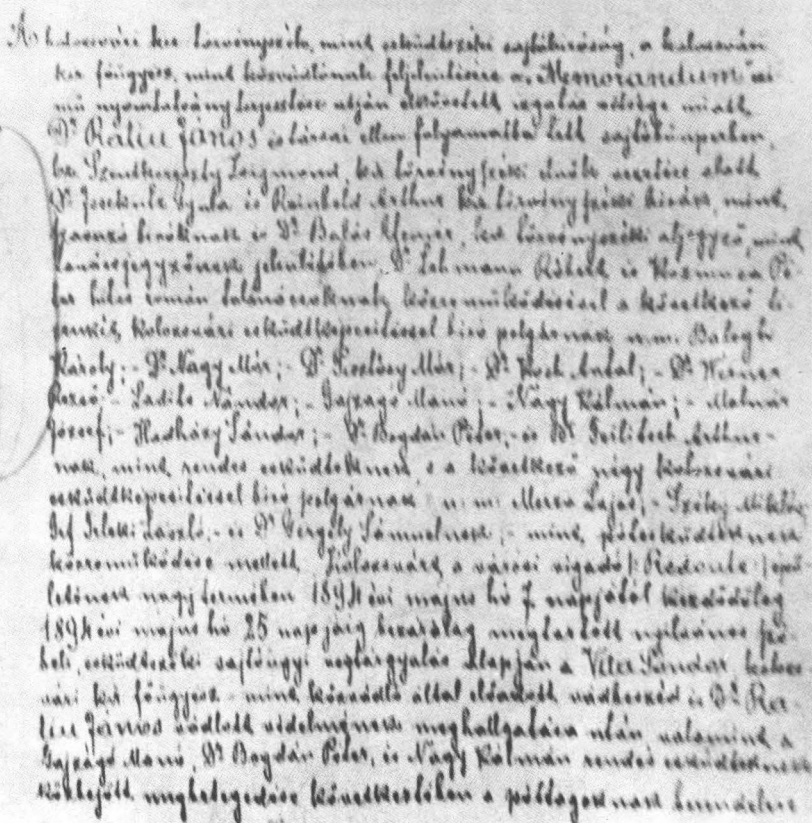 A kolozsvári kir törvényszék, mint esküdtszéki sajtóbiróság, a kolozsvári
kir főügyész, mint közvádlónak feljelentésére a „Memorandum" czi
mű nyomtatvány terjesztése utján elkövetett izgatás vétsége miatt
Dr Ratiu János és társai ellen folyamatba tett sajtóbünperben,
br. Szentkereszty Zsigmond, kir törvényszéki elnök vezetése alatt
Dr Gyula és Reinhold Arthur kir törvényszéki birák, mint
szavazó biróknak és Dr Balás Elemér, kir törvényszéki aljegyző, mint
tanácsjegyzőnek jelenlétében, Dr Lehmann Róbert és Kozmuca Pé-
ter hites román tolmácsoknak közreműködésével a következő ti-
zenkét, kolozsvári esküdtképesitéssel biró polgárnak u. m. Balogh
Károly; - Dr Nagy Mór; - Dr Mór; - Dr Koch Antal; - Dr Wisner
Rezső - Nándor; - Gajzagó Manó; - Nagy Kálmán; - Molnár
József; - Hadházy Sándor; - Dr Bogdán Péter, - és Dr Feilitsch Arthur-
nak, mint rendes esküdteknek, s a következő négy kolozsvári
esküdtképesitéssel biró polgárnak u. m. Merza Lajos; - Miklós
Teleki László, - és Dr Gergely Sámuelnek; - mint pótesküdteknek
közreműködése mellett Kolozsvárt, a városi vigadó /: Redoute :/ épü-
letének nagytermében 1894 évi majus hó 7 napjától kezdődőleg
1894 évi majus hó 25 napjáig bezárólag megtartott nyilvános szó-
beli, esküdtszéki sajtóügyi végtárgyalás alapján a Vita Sándor kolozs-
vári kir főügyész - mint közvádló által előadott vádbeszéd és Dr Ra-
tiu János vádlott védelmének meghallgatása után valamint a
Gajzágó Manó, Dr Bogdán Péter, és Nagy Kálmán rendes esküdteknek
közbejött megbetegedése következtében a póttagoknak berendelése